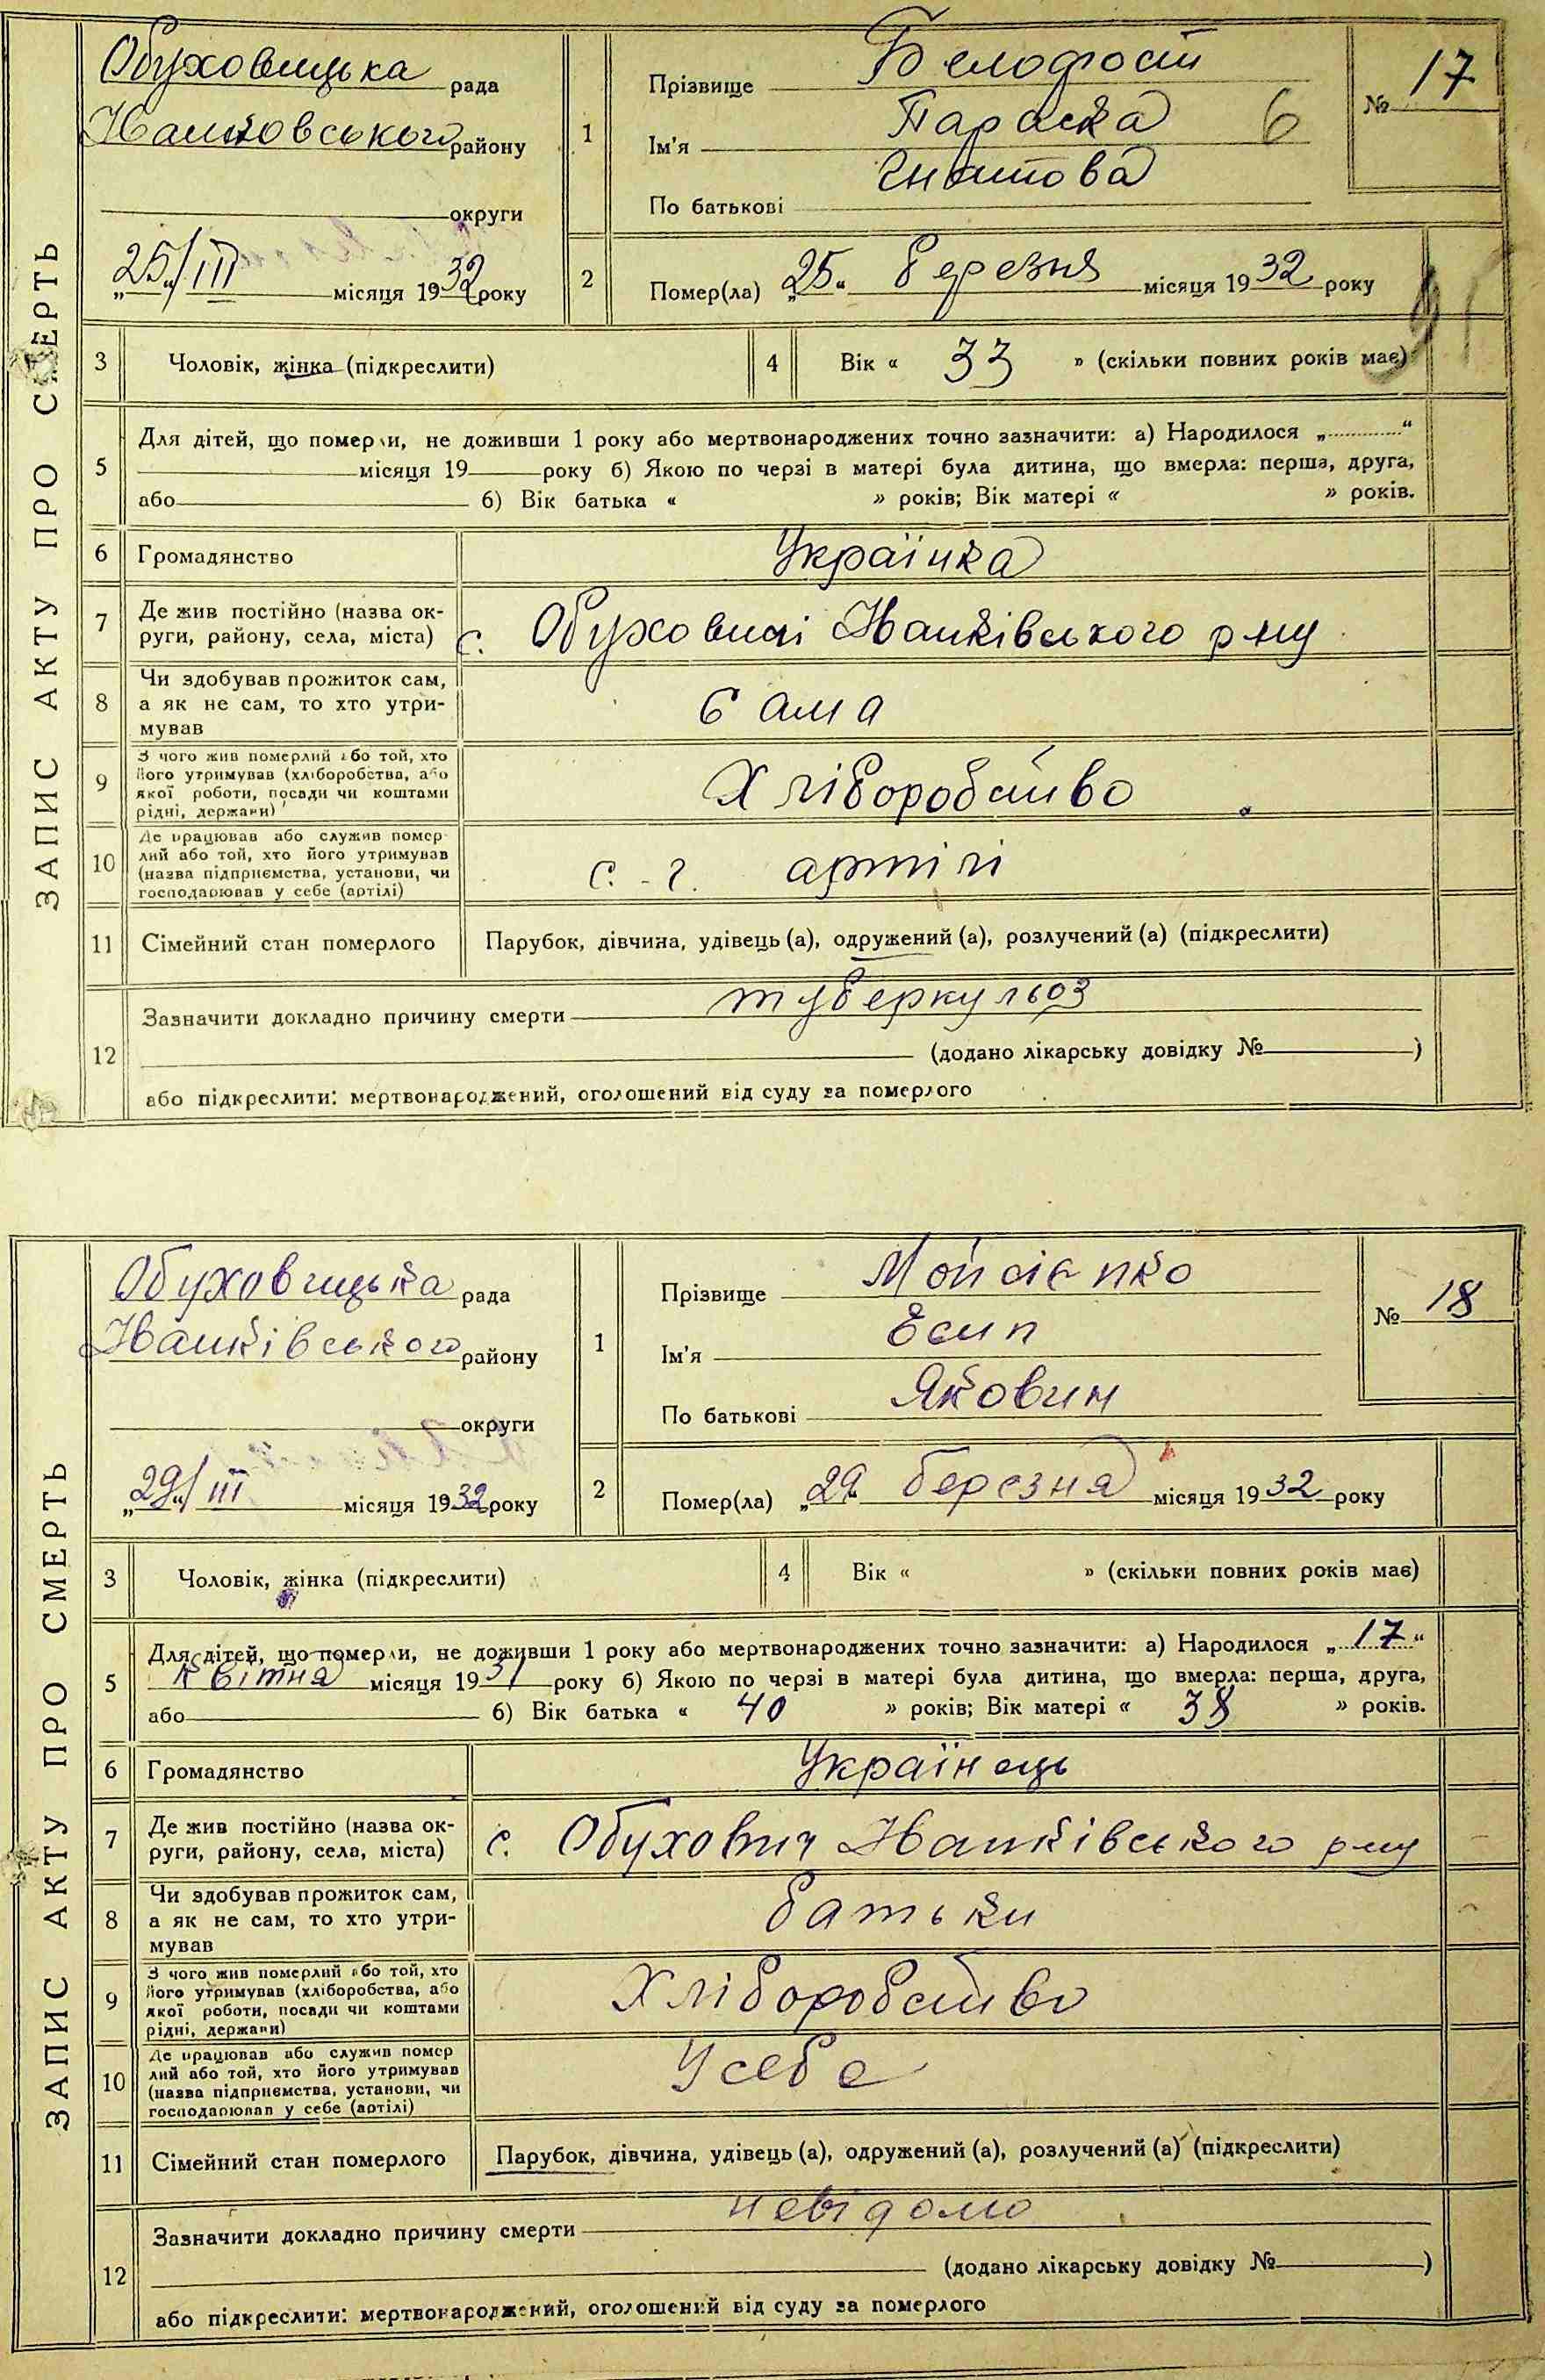 ЗАПИС АКТУ ПРО СМЕРТЬ
Обуховицька рада
Іванковського району
округи
„25“/III місяця 1932 року
1
Прізвище Белофост
Ім'я Параска 6
По батькові Гнатова
№ 17
2
Помер(ла) „25“ березня місяця 1932 року
3 Чоловік, жінка (підкреслити)
4 Вік « 33 » (скільки повних років має)
5 Для дітей, що померли, не доживши 1 року або мертвонароджених точно зазначити: а) Народилося „ “
місяця 19 року б) Якою по черзі в матері була дитина, що вмерла: перша, друга,
або 6) Вік батька « » років; Вік матері « » років.
6 Громадянство Українка
7 Де жив постійно (назва ок-
руги, району, села, міста) с. Обуховичі Іванківського р-ну
8 Чи здобував прожиток сам,
а як не сам, то хто утри-
мував
сама
9 З чого жив померлий або той, хто
його утримував (хліборобства, або
якої роботи, посади чи коштами
рідні, держави)
Хліборобство
10 Де працював або служив помер-
лий або той, хто його утримував
(назва підприємства, установи, чи
господарював у себе (артілі)
с.-г. артілі
11 Сімейний стан померлого Парубок, дівчина, удівець (а), одружений (а), розлучений (а) (підкреслити)
12 Зазначити докладно причину смерти туберкульоз
(додано лікарську довідку № )
або підкреслити: мертвонароджений, оголошений від суду за померлого
ЗАПИС АКТУ ПРО СМЕРТЬ
Обуховицька рада
Іванківського району
округи
„29“/III місяця 1932 року
1
Прізвище Мойсієнко
Ім'я Есип
По батькові Яковин
№ 18
2
Помер(ла) „29“ березня місяця 1932 року
3 Чоловік, жінка (підкреслити)
4 Вік « » (скільки повних років має)
5 Для дітей, що померли, не доживши 1 року або мертвонароджених точно зазначити: а) Народилося „17“
Квітня місяця 1931 року б) Якою по черзі в матері була дитина, що вмерла: перша, друга,
або 6) Вік батька « 40 » років; Вік матері « 38 » років.
6 Громадянство Українець
7 Де жив постійно (назва ок-
руги, району, села, міста) с. Обухович Іванківського р-ну
8 Чи здобував прожиток сам,
а як не сам, то хто утри-
мував
батьки
9 З чого жив померлий або той, хто
його утримував (хліборобства, або
якої роботи, посади чи коштами
рідні, держави)
Хліборобство
10 Де працював або служив помер
лий або той, хто його утримував
(назва підприємства, установи, чи
господарював у себе (артілі)
У себе
11 Сімейний стан померлого Парубок, дівчина, удівець (а), одружений (а), розлучений (а) (підкреслити)
12 Зазначити докладно причину смерти невідомо
(додано лікарську довідку № )
або підкреслити: мертвонароджений, оголошений від суду за померлого